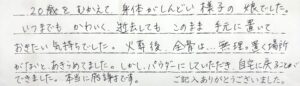 20歳をむかえて、身体がしんどい様子の娘でした。
いつまでもかわいく、逝去してもこのまま手元に置いて
おきたい気持ちでした。火葬後、全骨は、無理。置く場所
がないとあきらめてました。しかし、パウダーにしていただき、自宅に戻ることが
できました。本当に感謝です。 ご記入ありがとうございました。